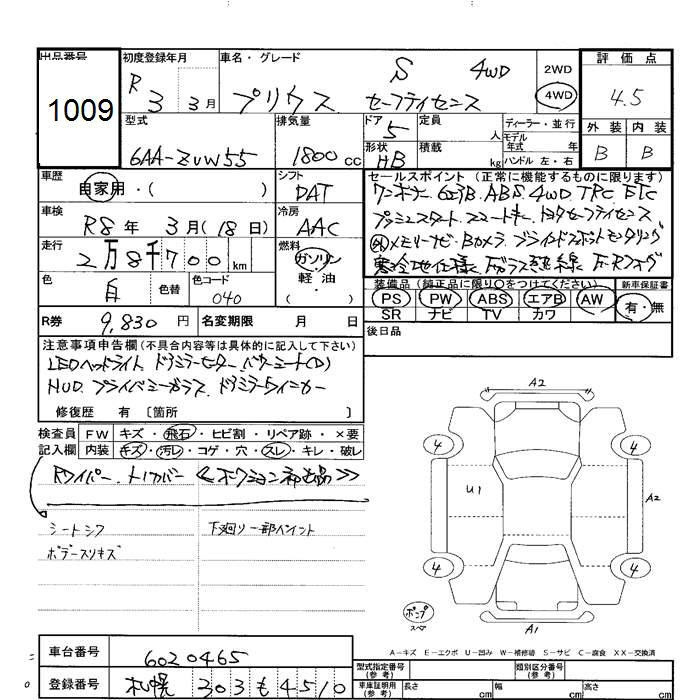 出品番号
1009
初度登録年月
R 3 3月
車名・グレード
S 4WD
プリウス セーフティセンス
2WD
4WD
評価点
4.5
外装 内装
B B
型式
6AA-ZVW55
排気量
1800 cc
ドア
5
形状
HB
定員
人
積載
kg
ディーラー・並行
モデル
年式 年
ハンドル 左・右
車歴
自家用・( )
シフト
DAT
車検
R8年 3月(18日)
冷房
AAC
走行
2万8千700km
燃料
ガソリン
軽・油
( )
色
白
色替
色コード
040
R券 9,830円
名変期限 月 日
セールスポイント(正常に機能するものに限ります)
ワンオーナー 6エアB ABS 4WD TRC ETC
プッシュスタート スマートキー トヨタセーフティセンス
メモリーナビ・Bカメラ ブラインドスポットモニタリング
寒冷地仕様 Fガラス熱線 F・Rフォグ
装備品(純正品に限り○をつけてください)
PS PW ABS エアB AW
SR ナビ TV カワ
新車保証書
有・無
後日品
注意事項申告欄(不具合内容等は具体的に記入して下さい)
LEDヘッドライト ドアミラーヒーター パワーシート(D)
HUD プライバシーガラス ドアミラーウィンカー
修復歴 有 〔箇所 〕
検査員
記入欄
FW キズ・飛石・ヒビ割・リペア跡・×要
内装 キズ・汚レ・コゲ・穴・スレ・キレ・破レ
Rワイパー、トノカバー 《オークション神出品》
シートシワ 下廻り一部ペイント
ボデースリキズ
A2
4 4
U1
A2
4 4
ポンプ
スペア
A1
A－キズ E－エクボ U－凹み W－補修跡 S－サビ C－腐食 XX－交換済
車台番号 6020465
登録番号 札幌 303 も 4510
型式指定番号
(参考)
類別区分番号
(参考)
車庫証明用
(参考)
長さ cm 幅 cm 高さ cm